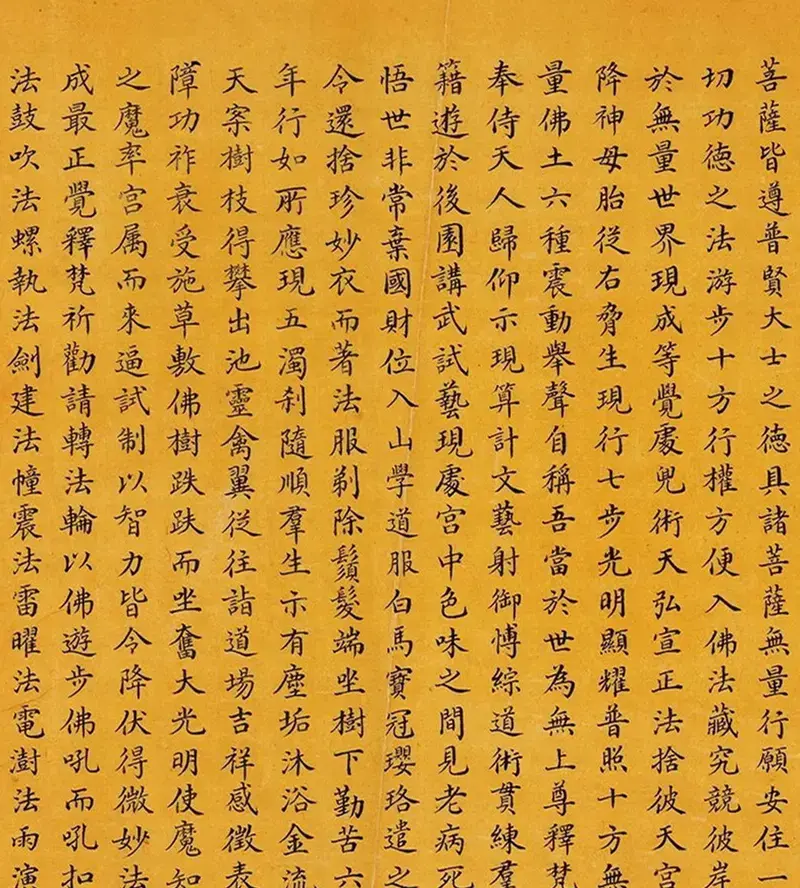 菩薩皆遵普賢大士之德具諸菩薩無量行願安住一
切功德之法游步十方行權方便入佛法藏究竸彼岸
於無量世界現成等覺處兜術天弘宣正法捨彼天宮
降神母胎從右脅生現行七步光明顯耀普照十方無
量佛土六種震動舉聲自稱吾當於世為無上尊釋梵
奉侍天人歸仰示現算計文藝射御愽綜道術貫練羣
籍遊於後園講武試藝現處宮中色味之間見老病死
悟世非常棄國財位入山學道服白馬寶冠瓔珞遣之
令還捨珍妙衣而著法服剃除鬚髮端坐樹下勤苦六
年行如所應現五濁刹隨順羣生示有塵垢沐浴金流
天案樹枝得攀出池靈禽翼從往詣道場吉祥感徵表
障功祚哀受施草敷佛樹跌趺而坐奮大光明使魔知
之魔率官属而來逼試制以智力皆令降伏得微妙法
成最正覺釋梵祈勸請轉法輪以佛遊步佛吼而吼扣
法鼓吹法螺執法劍建法幢震法雷曜法電澍法雨演